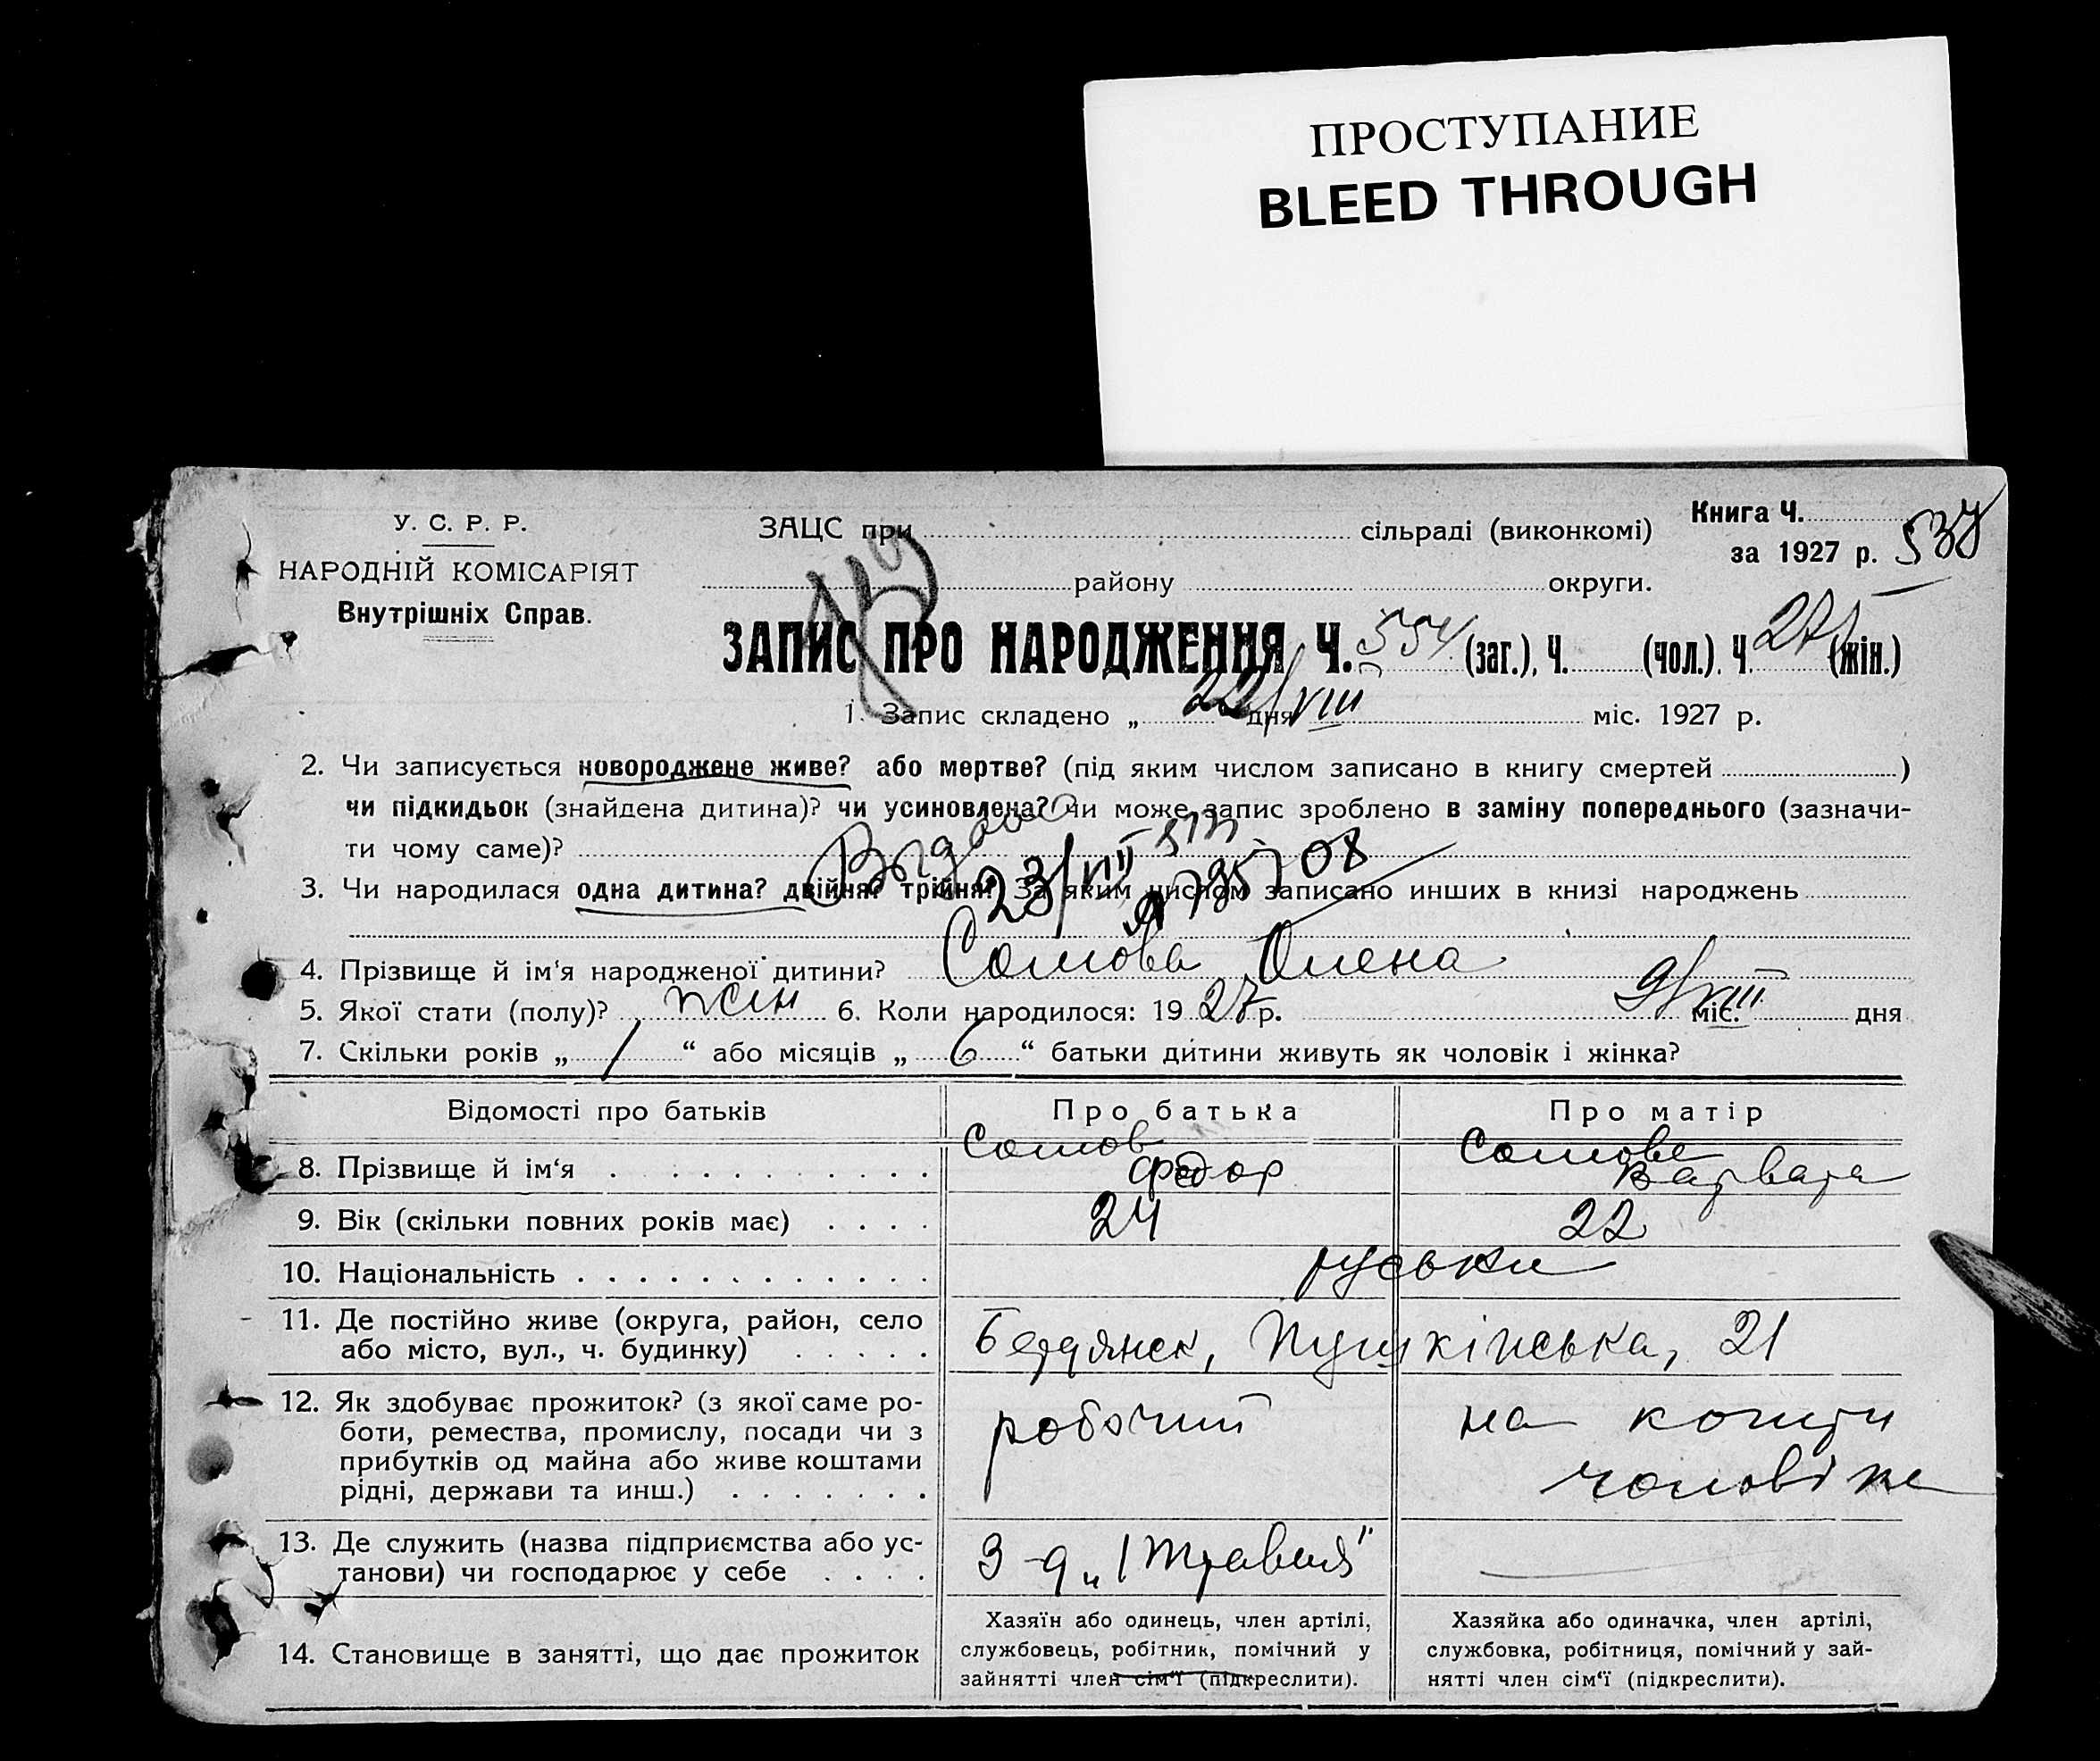 ПРОСТУПАНИЕ
BLEED THROUGH
У. С. Р. Р.
НАРОДНІЙ КОМІСАРІЯТ
Внутрішніх Справ.
ЗАЦС при сільраді (виконкомі)
району округи.
Книга Ч.
за 1927 р.
ЗАПИС ПРО НАРОДЖЕННЯ Ч. 554 (заг.), Ч. (чол.), Ч. 271 (жін.)
1. Запис складено „ 22/VIII дня міс. 1927 р.
2. Чи записується новороджене живе? або мертве? (під яким числом записано в книгу смертей )
чи підкидьок (знайдена дитина)? чи усиновлена? чи може запис зроблено в заміну попереднього (зазначи-
ти чому саме)?
23/VIII
3. Чи народилася одна дитина? двійня? трійня? За яким числом записано инших в книзі народжень
4. Прізвище й ім'я народженої дитини? Сомова Олена
5. Якої стати (полу)? жін 6. Коли народилося: 19 27 р. 9/VIII міс. дня
7. Скільки років „ 1 “ або місяців „ 6 “ батьки дитини живуть як чоловік і жінка?
Відомості про батьків Про батька Про матір
8. Прізвище й ім'я Сомов Федор Сомова Варвара
9. Вік (скільки повних років має) 24 22
10. Національність руськи
11. Де постійно живе (округа, район, село
або місто, вул., ч. будинку) Бердянск, Пушкінська, 21
12. Як здобуває прожиток? (з якої саме ро-
боти, ремества, промислу, посади чи з
прибутків од майна або живе коштами
рідні, держави та инш.) робочий на кошти чоловіка
13. Де служить (назва підприємства або ус-
танови) чи господарює у себе З-д „1 травня"
14. Становище в занятті, що дає прожиток
Хазяїн або одинець, член артілі,
службовець, робітник, помічний у
зайнятті член сім'ї (підкреслити).
Хазяйка або одиначка, член артілі,
службовка, робітниця, помічний у зай-
нятті член сім'ї (підкреслити).